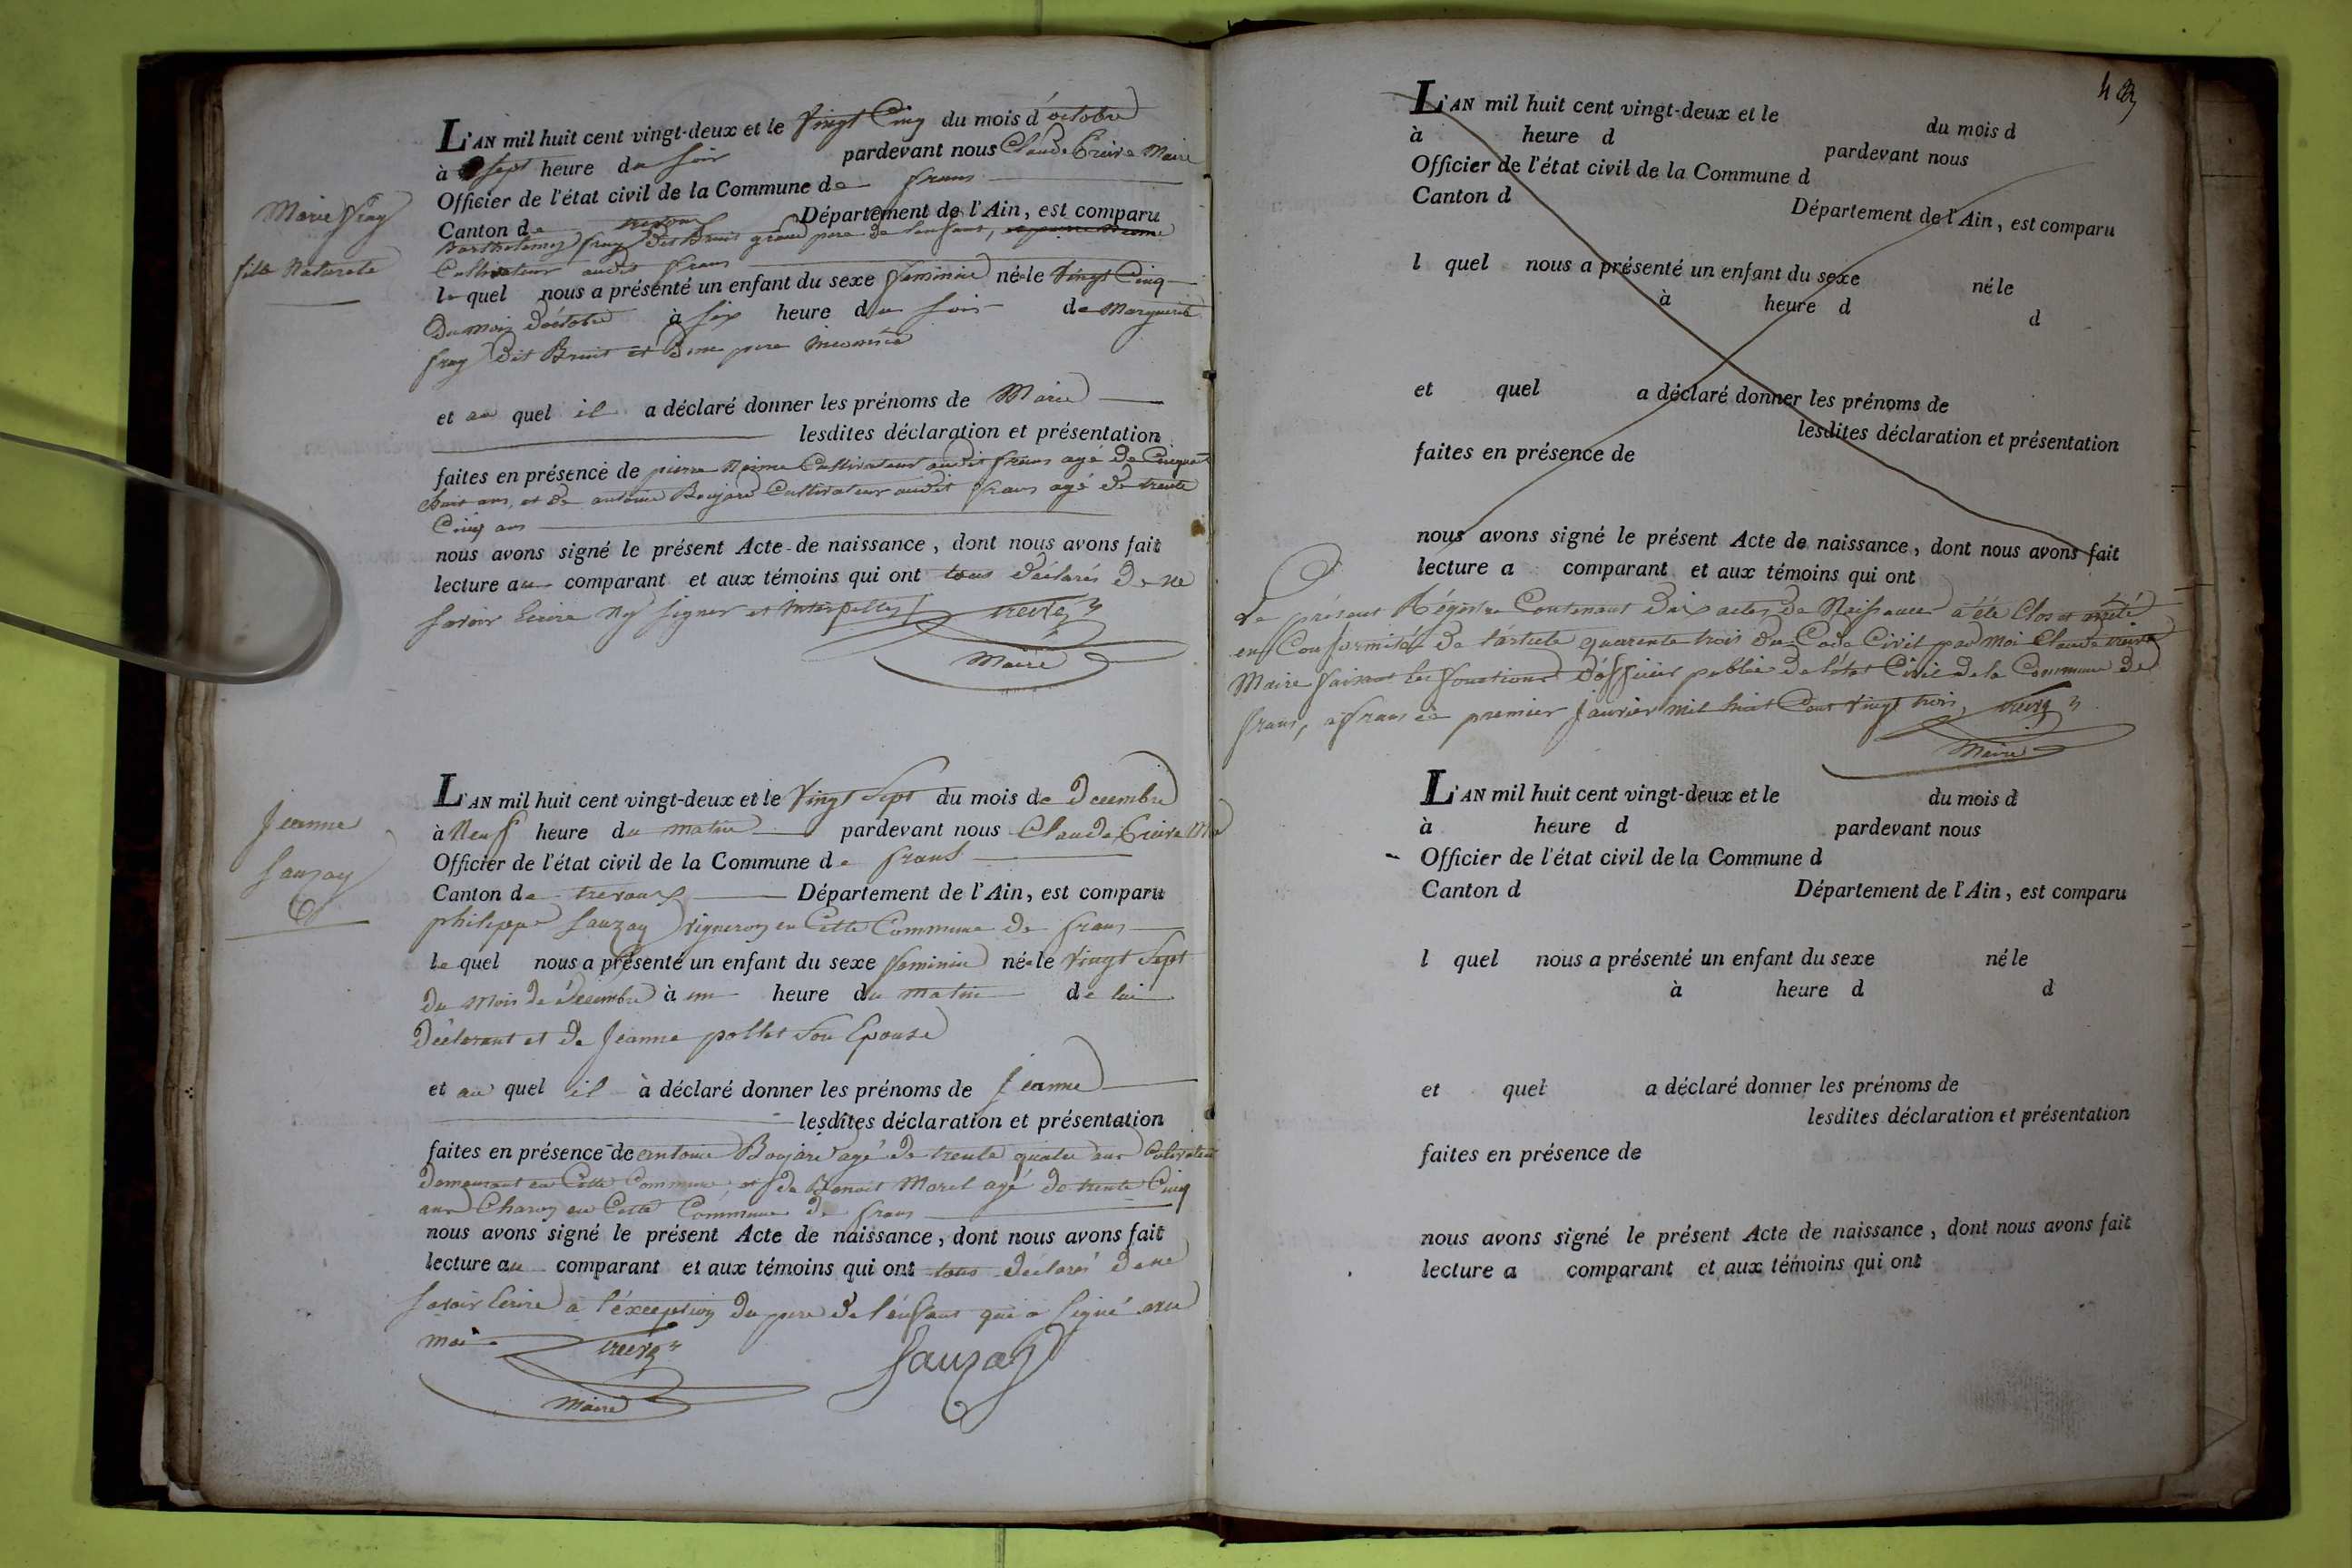 Marie fray
fille Naturele
L'AN mil huit cent vingt-deux et le Vingt Cinq du mois d'octobre
à sept heure du soir pardevant nous Claude Treive Maire
Officier de l'état civil de la Commune de frans
Canton de trevoux Département de l'Ain, est comparu
Barthelemy fray dit Bruit grand pere de l'enfant,
Cultivateur audit frans
lequel nous a présenté un enfant du sexe feminin née le Vingt Cinq
Du mois d'octobre à six heure du soir de Marguerite
fray dit Bruit et D'un pere inconnu
et au quel il a déclaré donner les prénoms de Marie
lesdites déclaration et présentation
faites en présence de pierre Cultivateur audit frans agé de Cinquante
huit ans, et de antoine Boujard Cultivateur audit frans agé de trente
Cinq ans
nous avons signé le présent Acte de naissance, dont nous avons fait
lecture au comparant et aux témoins qui ont tous déclarés de ne
savoir Ecrire Ny signer et interpellés treive
Maire
Jeanne
Sauzay
L'AN mil huit cent vingt-deux et le Vingt Sept du mois de Decembre
à Neuf heure du matin pardevant nous Claude Treive Me
Officier de l'état civil de la Commune de frans
Canton de trevoux Département de l'Ain, est comparu
philippe Sauzay vigneron en Cette Commune de frans
lequel nous a présenté un enfant du sexe feminin née le Vingt Sept
du mois de décembre à un heure du matin de lui
Déclarant et de Jeanne pollet son Epouse
et au quel il à déclaré donner les prénoms de Jeanne
lesdites déclaration et présentation
faites en présence de antoine Boujard agé de trente quatre ans Cultivateur
demeurant en Cette Commune et de Benoit Morel agé de trente Cinq
ans Charon en Cette Commune de frans
nous avons signé le présent Acte de naissance, dont nous avons fait
lecture au comparant et aux témoins qui ont tous déclarés de ne
savoir Ecrire à l'éxception du pere de l'enfant qui a signé avec
moi treive Sauzay
Maire
L'AN mil huit cent vingt-deux et le du mois d
à heure d pardevant nous
Officier de l'état civil de la Commune d
Canton d Département de l'Ain, est comparu
l quel nous a présenté un enfant du sexe né le
à heure d d
et quel a déclaré donner les prénoms de
lesdites déclaration et présentation
faites en présence de
nous avons signé le présent Acte de naissance, dont nous avons fait
lecture a comparant et aux témoins qui ont
Le présent Régistre Contenant Dix actes de Naissance a été Clos et arrêté
en Conformité de l'article quarente trois du Code Civil par Moi Claude treive
Maire faisant les fonctions d'officier public de l'état Civil de la Commune de
frans, à frans ce premier janvier mil huit Cent Vingt trois, treive
Maire
L'AN mil huit cent vingt-deux et le du mois d
à heure d pardevant nous
Officier de l'état civil de la Commune d
Canton d Département de l'Ain, est comparu
l quel nous a présenté un enfant du sexe né le
à heure d d
et quel a déclaré donner les prénoms de
lesdites déclaration et présentation
faites en présence de
nous avons signé le présent Acte de naissance, dont nous avons fait
lecture a comparant et aux témoins qui ont